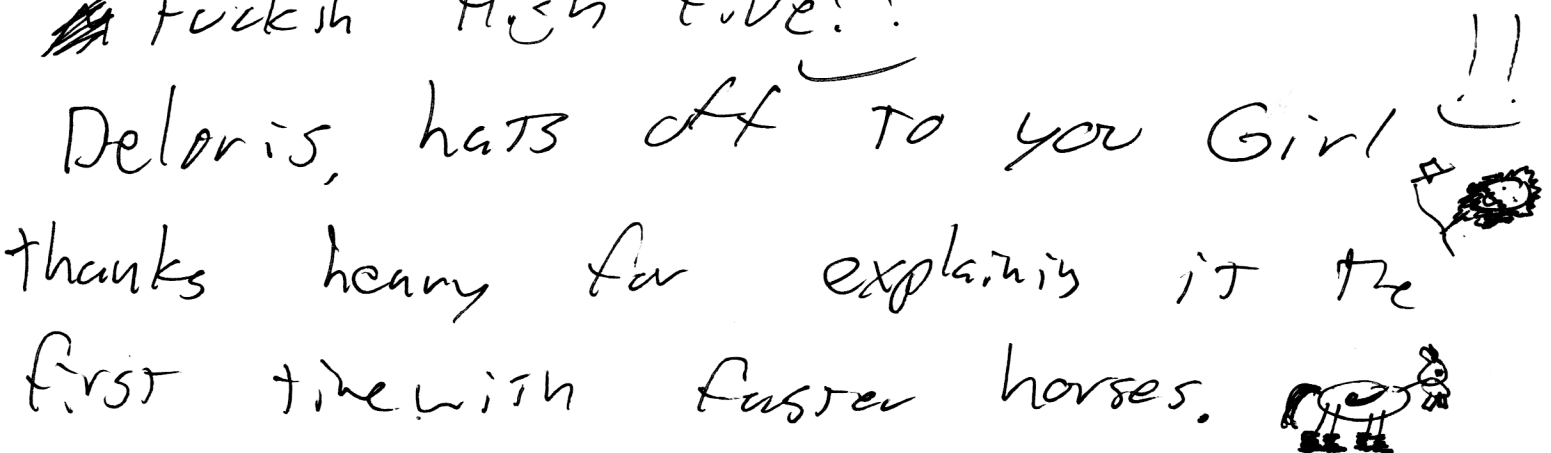 fuckin High five!!
Deloris, hats off To you Girl !!
thanks henry for explainin it the
first time with faster horses.